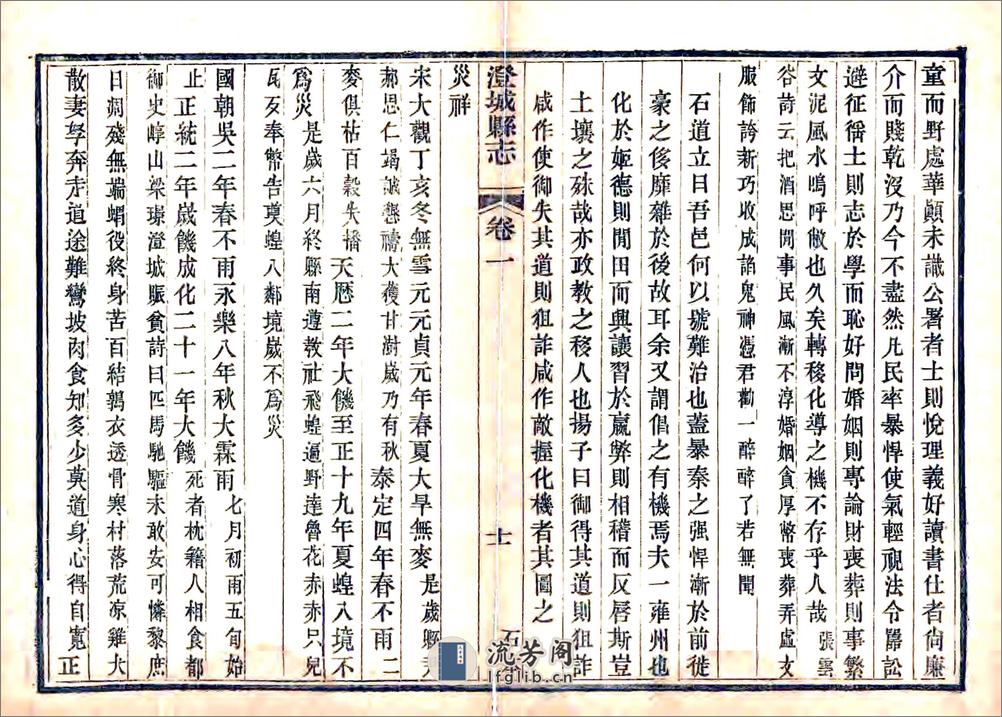 童而野處華顛未識公署者士則悅理義好讀書仕者尚廉
介而賤乾沒乃今不盡然凡民率暴悍使氣輕視法令嚚訟
避征徭士則志於學而恥好問婚姻則專論財喪葬則事繁
文泥風水嗚呼敝也久矣轉移化導之機不存乎人哉 張雲
谷詩云把酒思閒事民風漸不淳婚姻貪厚幣喪葬弄虛文
服飾誇新巧收成諂鬼神憑君勸一醉醉了若無聞
石道立曰吾邑何以號難治也蓋暴秦之强悍漸於前徙
豪之侈靡雜於後故耳余又謂倡之有機焉夫一雍州也
化於姬德則閒田而興讓習於嬴弊則相稽而反唇斯豈
土壤之殊哉亦政教之移人也揚子曰御得其道則狙詐
咸作使御失其道則狙詐咸作敵握化機者其圖之
澄城縣志 卷一 十一
災祥
宋大觀丁亥冬無雪元元貞元年春夏大旱無麥 是歲縣尹
郝思仁竭誠懇禱大穫甘澍歲乃有秋 泰定四年春不雨二
麥俱枯百穀失播 天曆二年大饑至正十九年夏蝗入境不
為災 是歲六月終縣南遵教社飛蝗遍野達魯花赤赤只兒
尾歹奉幣告奠蝗入鄰境歲不為災
國朝吳二年春不雨永樂八年秋大霖雨 七月初雨五旬始
止 正統二年歲饑成化二十一年大饑 死者枕籍人相食都
御史崞山梁璟澄城賑貧詩曰匹馬馳驅未敢安可憐黎庶
日凋殘無端蝟役終身苦百結鶉衣透骨寒村落荒凉雞犬
散妻孥奔走道途難鸞坡肉食知多少莫道身心得自寬 正
流芳阁
lfglib.cn